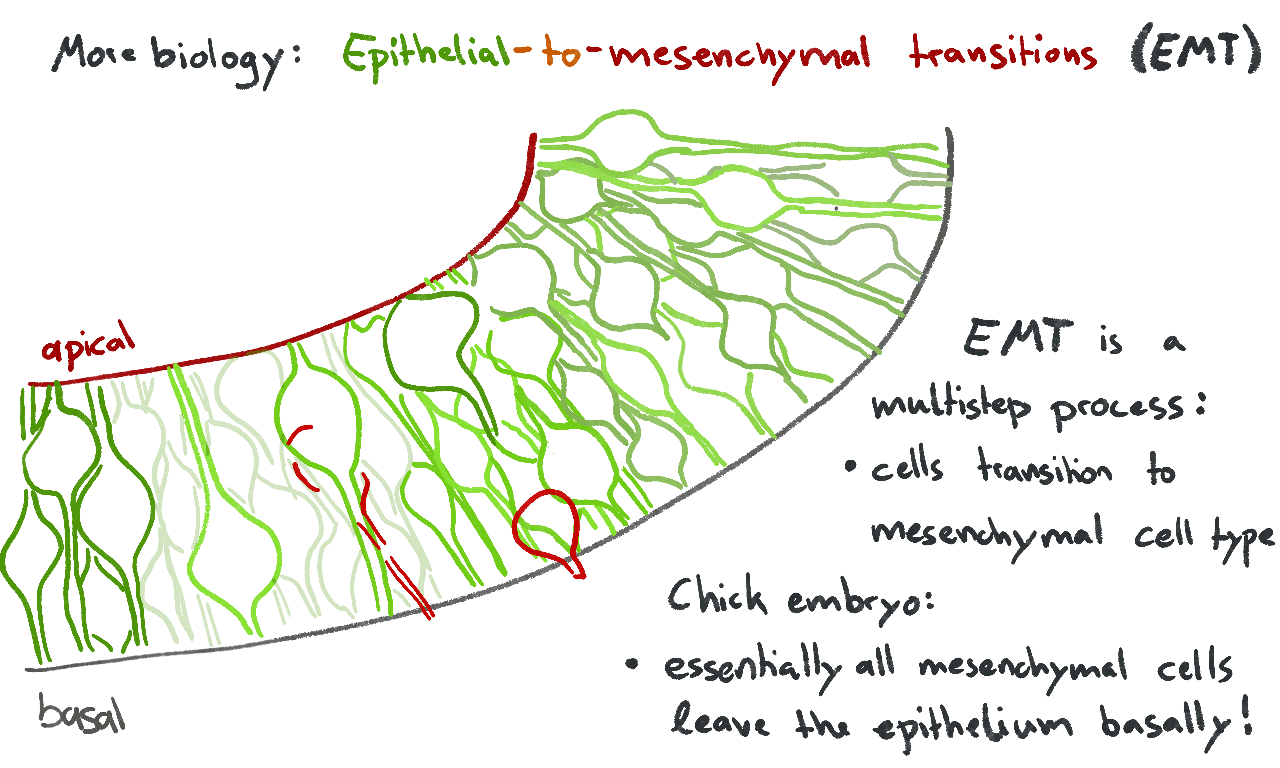 More biology: Epithelial-to-mesenchymal transitions (EMT)
apical
basal
EMT is a
multistep process:
• cells transition to
mesenchymal cell type
Chick embryo:
• essentially all mesenchymal cells
leave the epithelium basally!